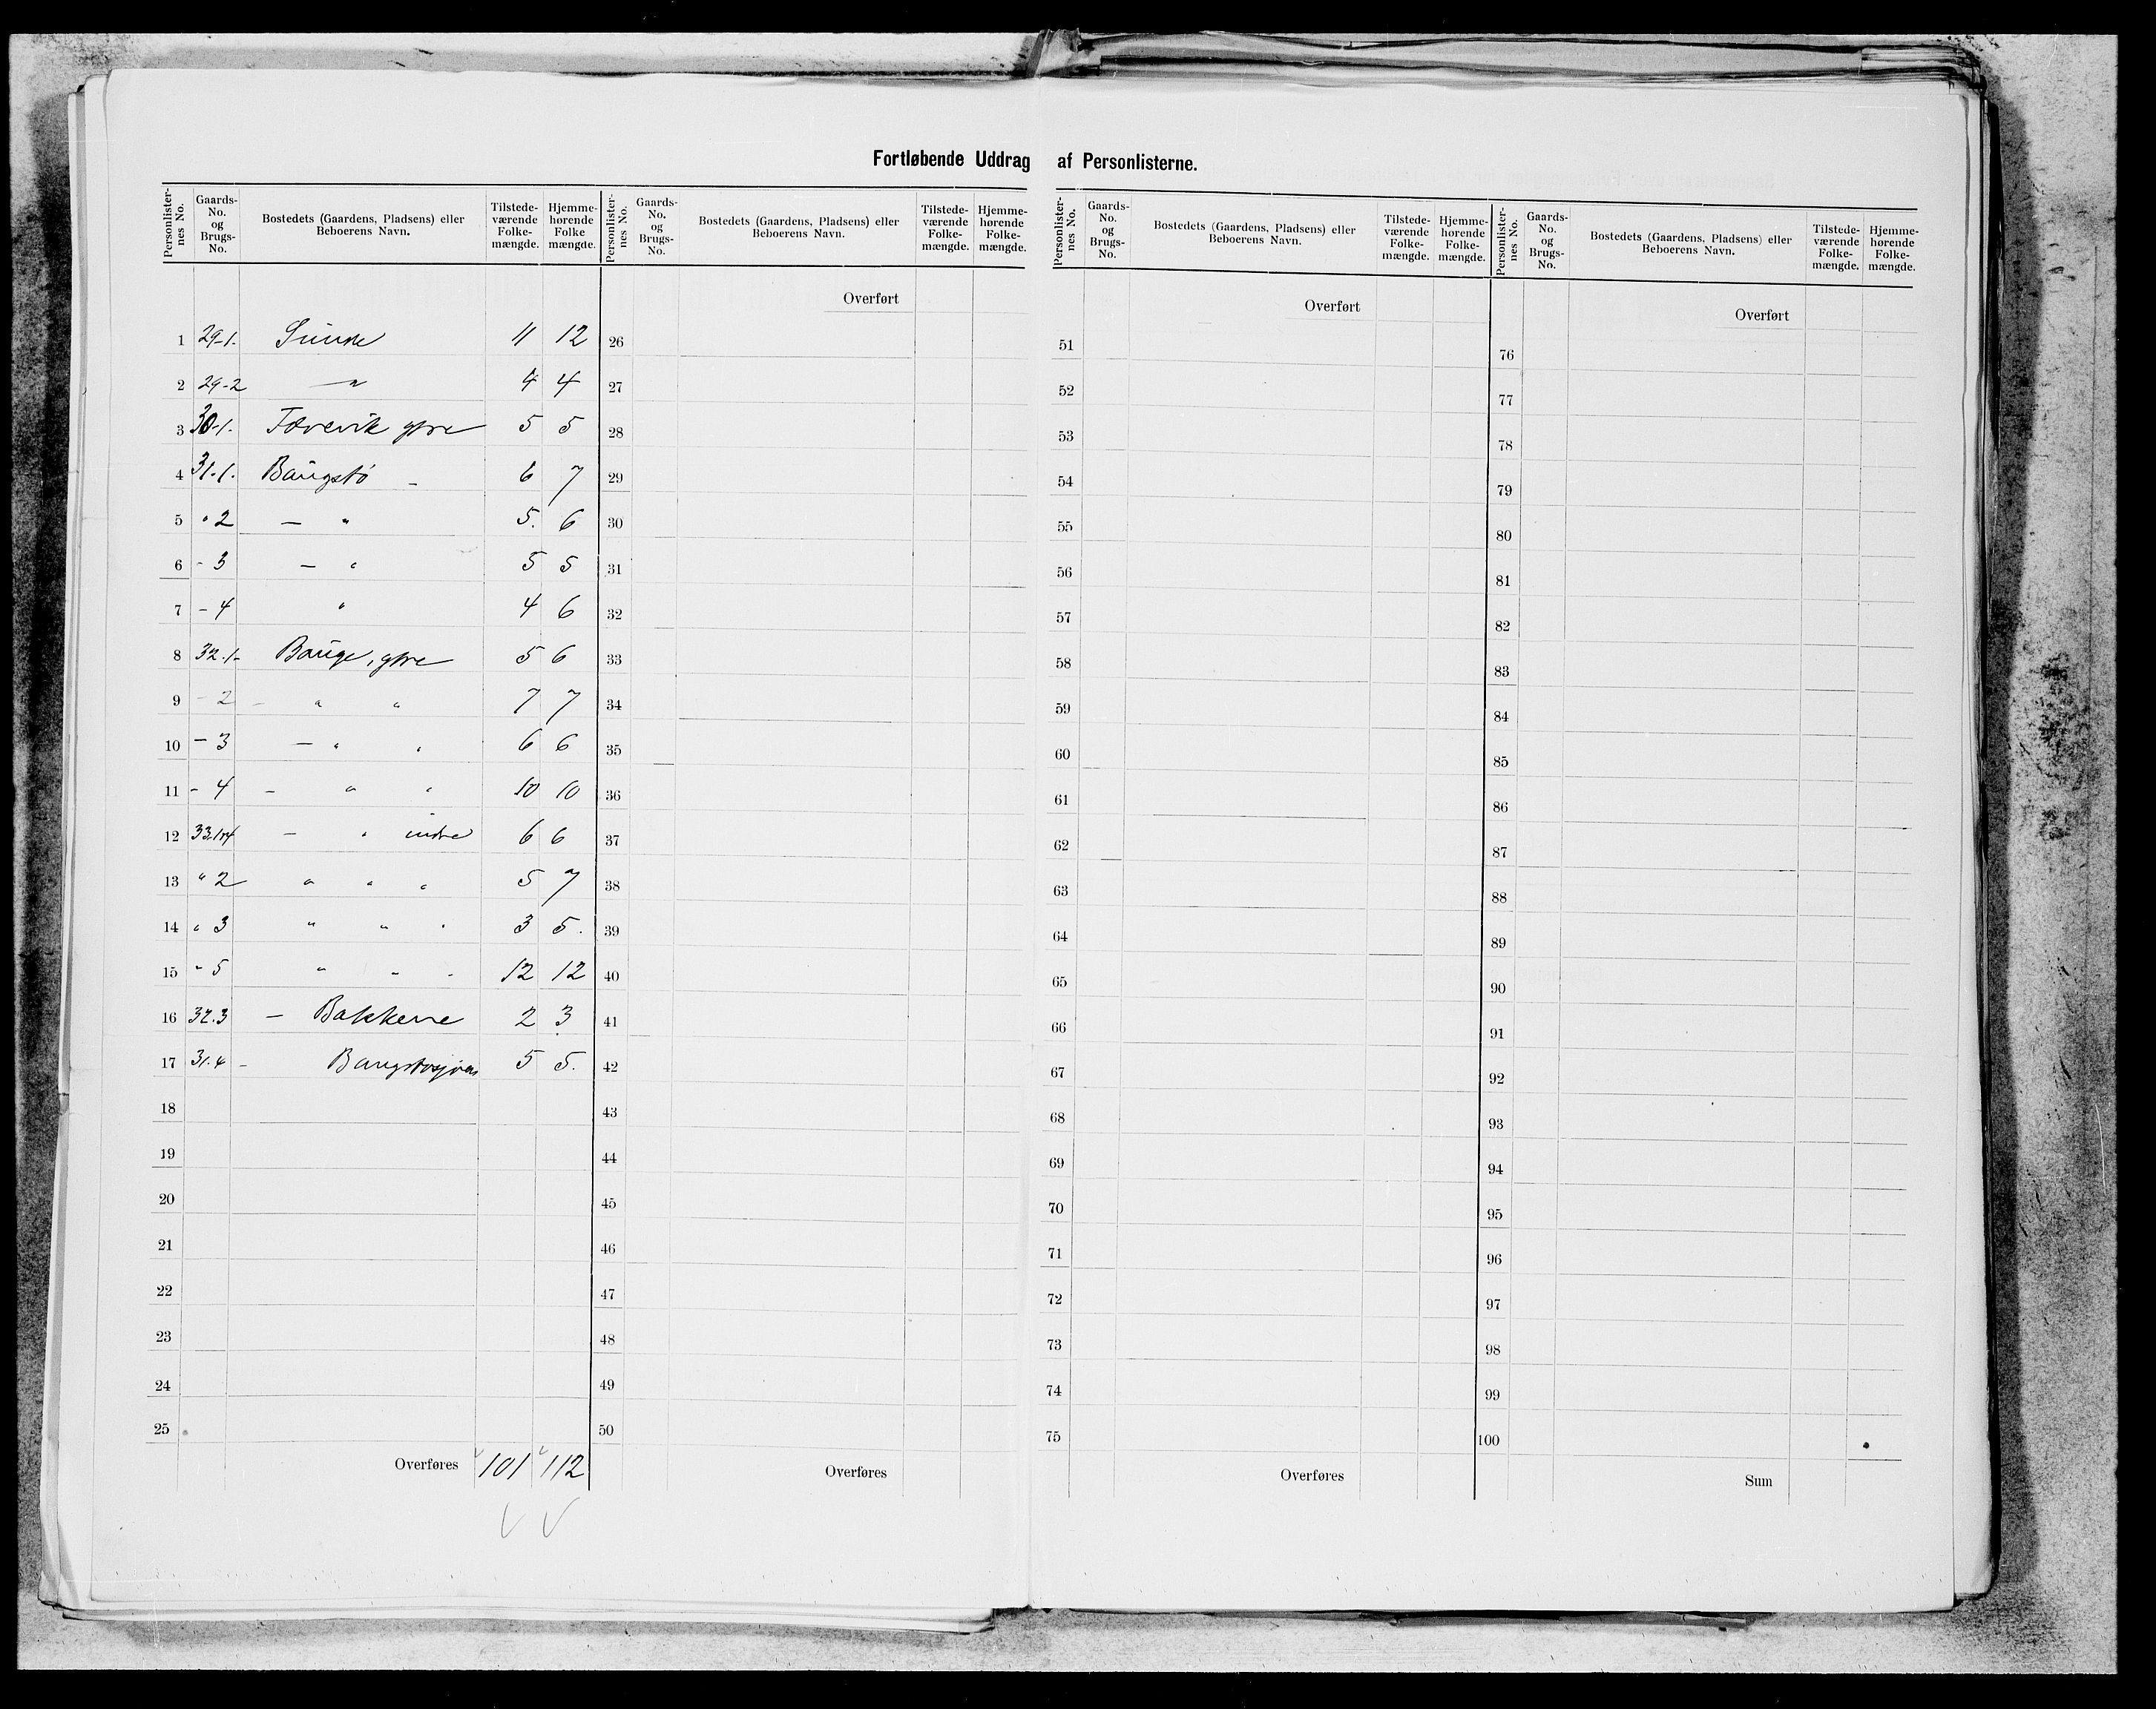 Fortløbende Uddrag af Personlisterne.
Personlister-nes No. | Gaards-No. og Brugs-No. | Bostedets (Gaardens, Pladsens) eller Beboerens Navn. | Tilstede-værende Folke-mængde. | Hjemme-hørende Folke mængde.
1 29-1. Sunde 11 12
2 29-2 — " 4 4
3 30-1. Færevik ytre 5 5
4 31-1. Baugstø - 6 7
5 " 2 — " 5. 6
6 - 3 — " 5 5
7 - 4 " 4 6
8 32.1- Bauge, ytre 5 6
9 - 2 - " " 7 7
10 - 3 — " " 6 6
11 - 4 - " " 10 10
12 33,1+4 - " indre 6 6
13 " 2 " " " 5 7
14 " 3 " " " 3 5.
15 " 5 " " " 12 12
16 32.3 — Bakkene 2 3
17 31.4 - 5 5.
18
19
20
21
22
23
24
25
Overføres 101 112
Personlister-nes No. | Gaards-No. og Brugs-No. | Bostedets (Gaardens, Pladsens) eller Beboerens Navn. | Tilstede-værende Folke-mængde. | Hjemme-hørende Folke-mængde.
Overført
26
27
28
29
30
31
32
33
34
35
36
37
38
39
40
41
42
43
44
45
46
47
48
49
50
Overføres
Personlister-nes No. | Gaards-No. og Brugs-No. | Bostedets (Gaardens, Pladsens) eller Beboerens Navn. | Tilstede-værende Folke-mængde. | Hjemme-hørende Folke-mængde.
Overført
51
52
53
54
55
56
57
58
59
60
61
62
63
64
65
66
67
68
69
70
71
72
73
74
75
Overføres
Personlister-nes No. | Gaards-No. og Brugs-No. | Bostedets (Gaardens, Pladsens) eller Beboerens Navn. | Tilstede-værende Folke-mængde. | Hjemme-hørende Folke-mængde.
Overført
76
77
78
79
80
81
82
83
84
85
86
87
88
89
90
91
92
93
94
95
96
97
98
99
100
Sum